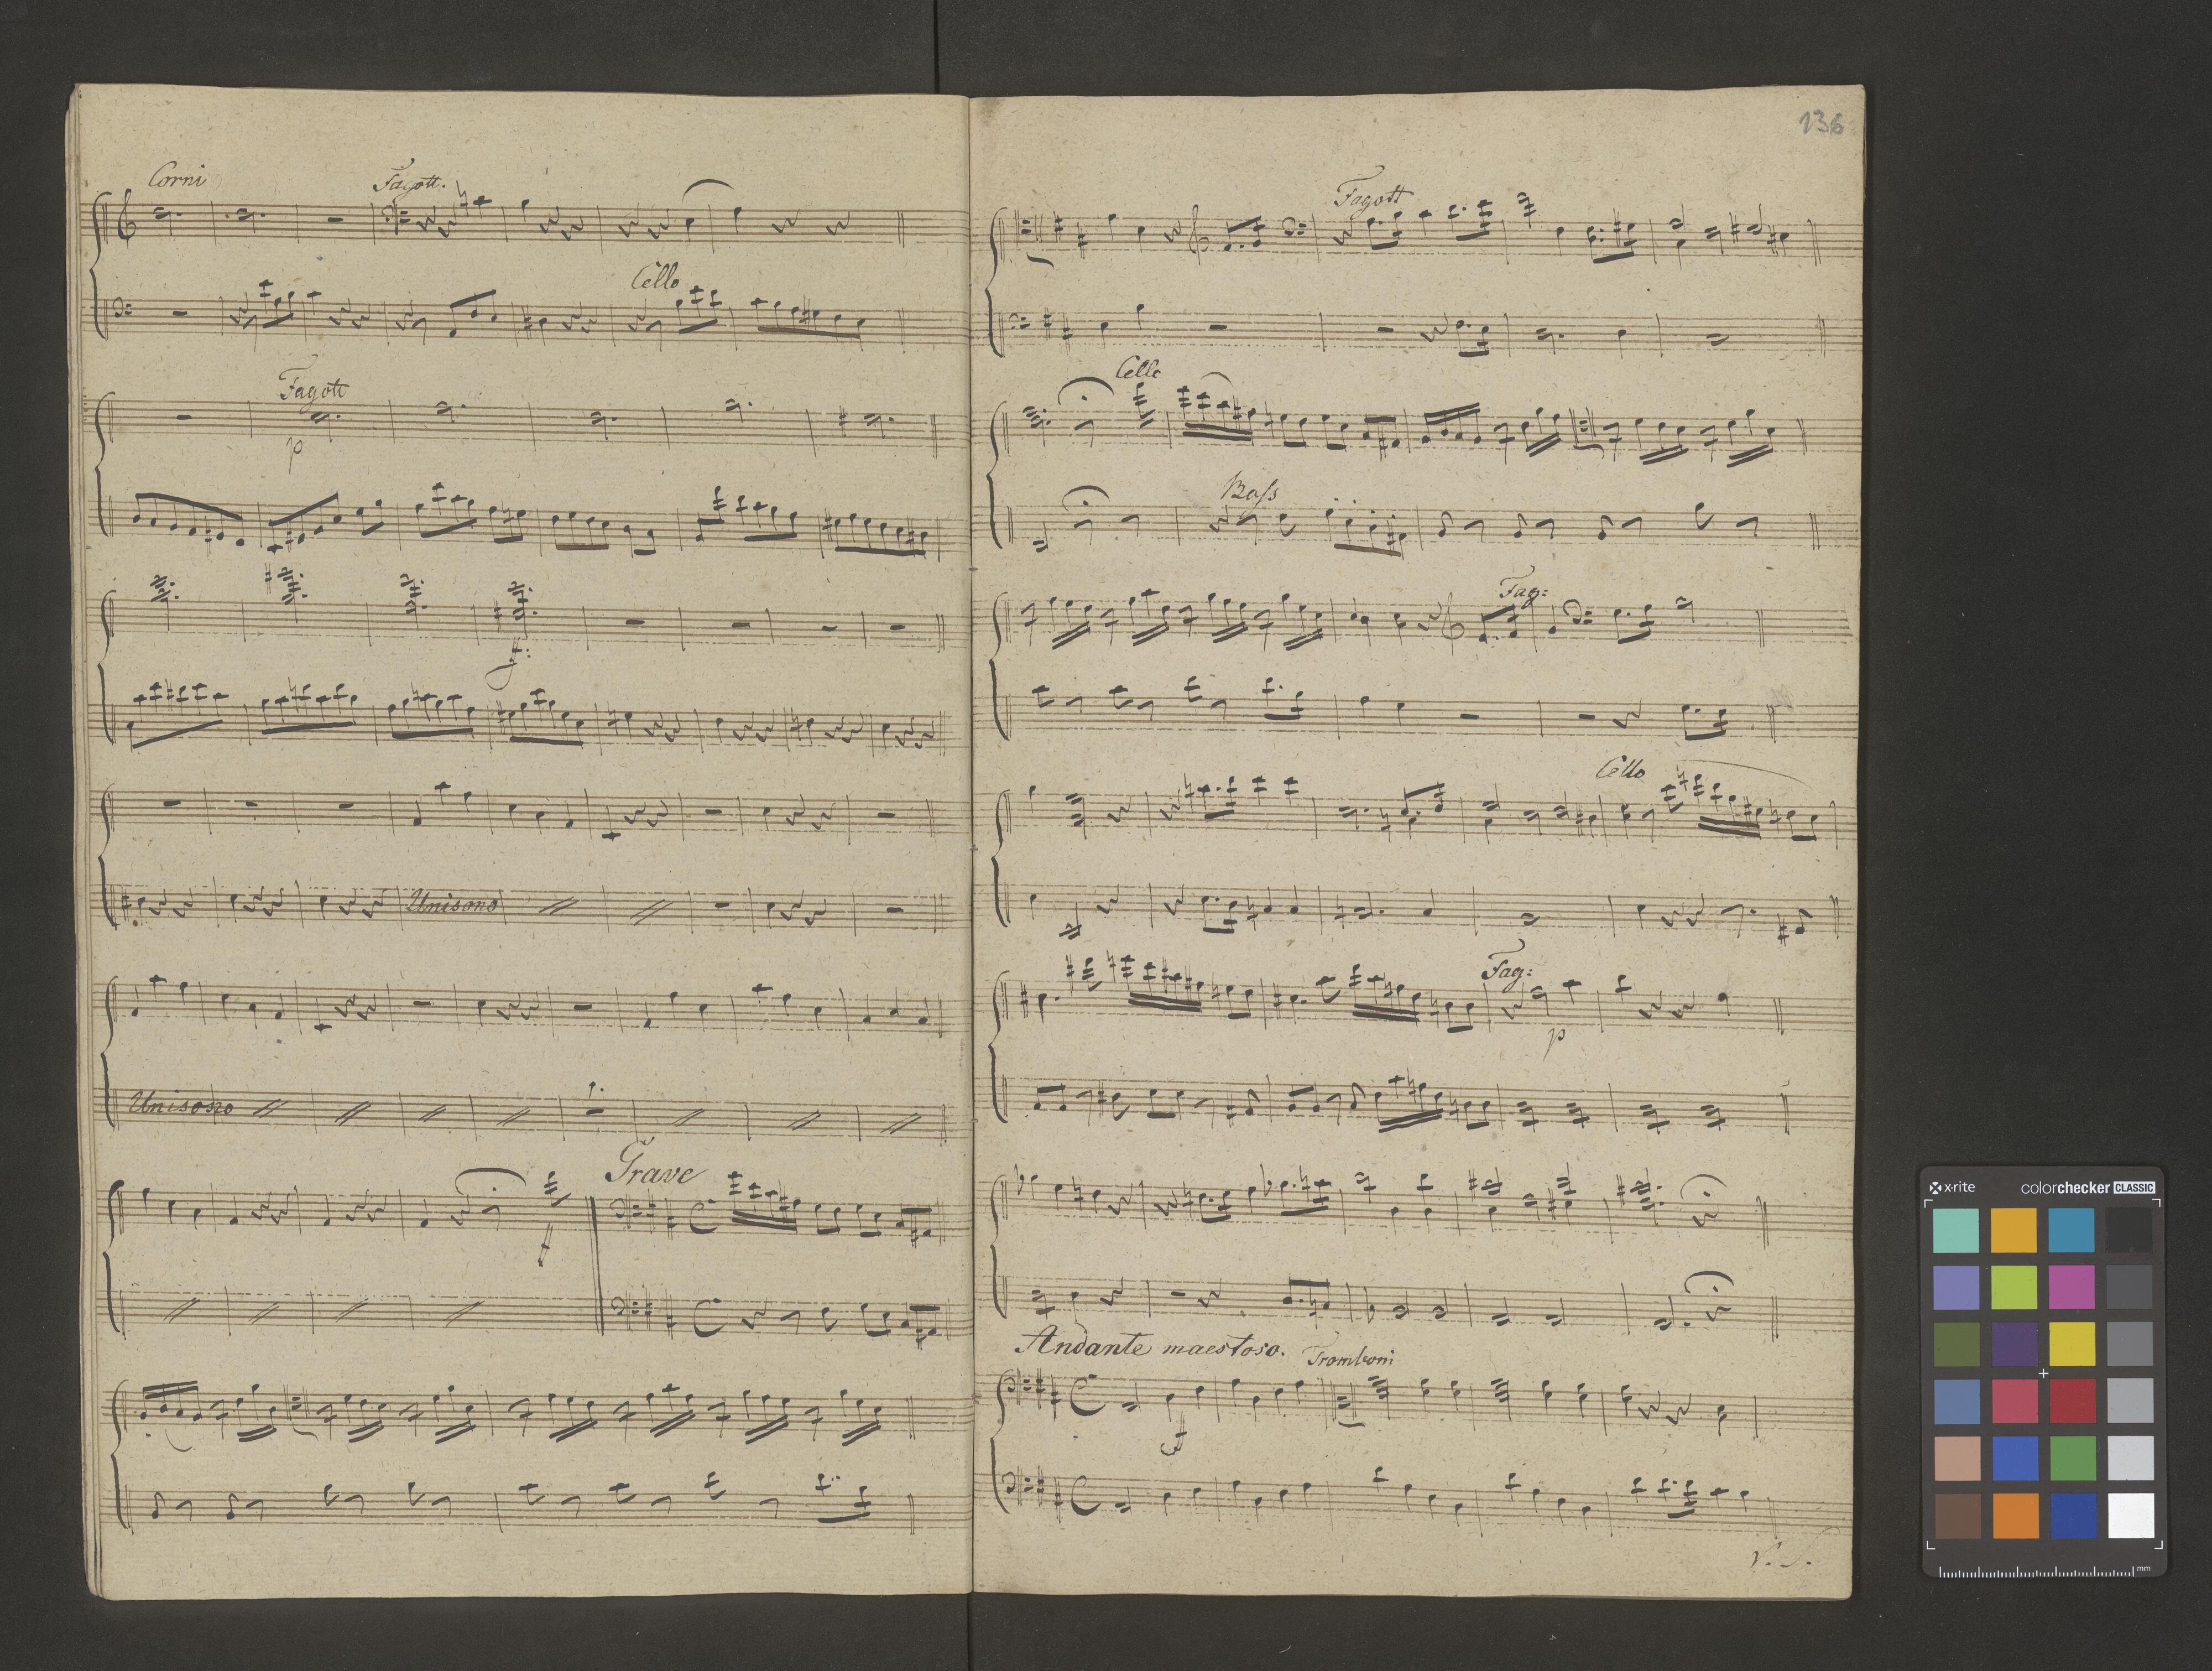 Corni Fagott.
Cello
Fagott
p
f:
Unisono
Unisono
1.
Grave
f
136
Fagott
Cello
Bass
Fag:
Cello
Fag:
p
Andante maestoso. Tromboni
f
V. S.
x-rite colorchecker CLASSIC
mm